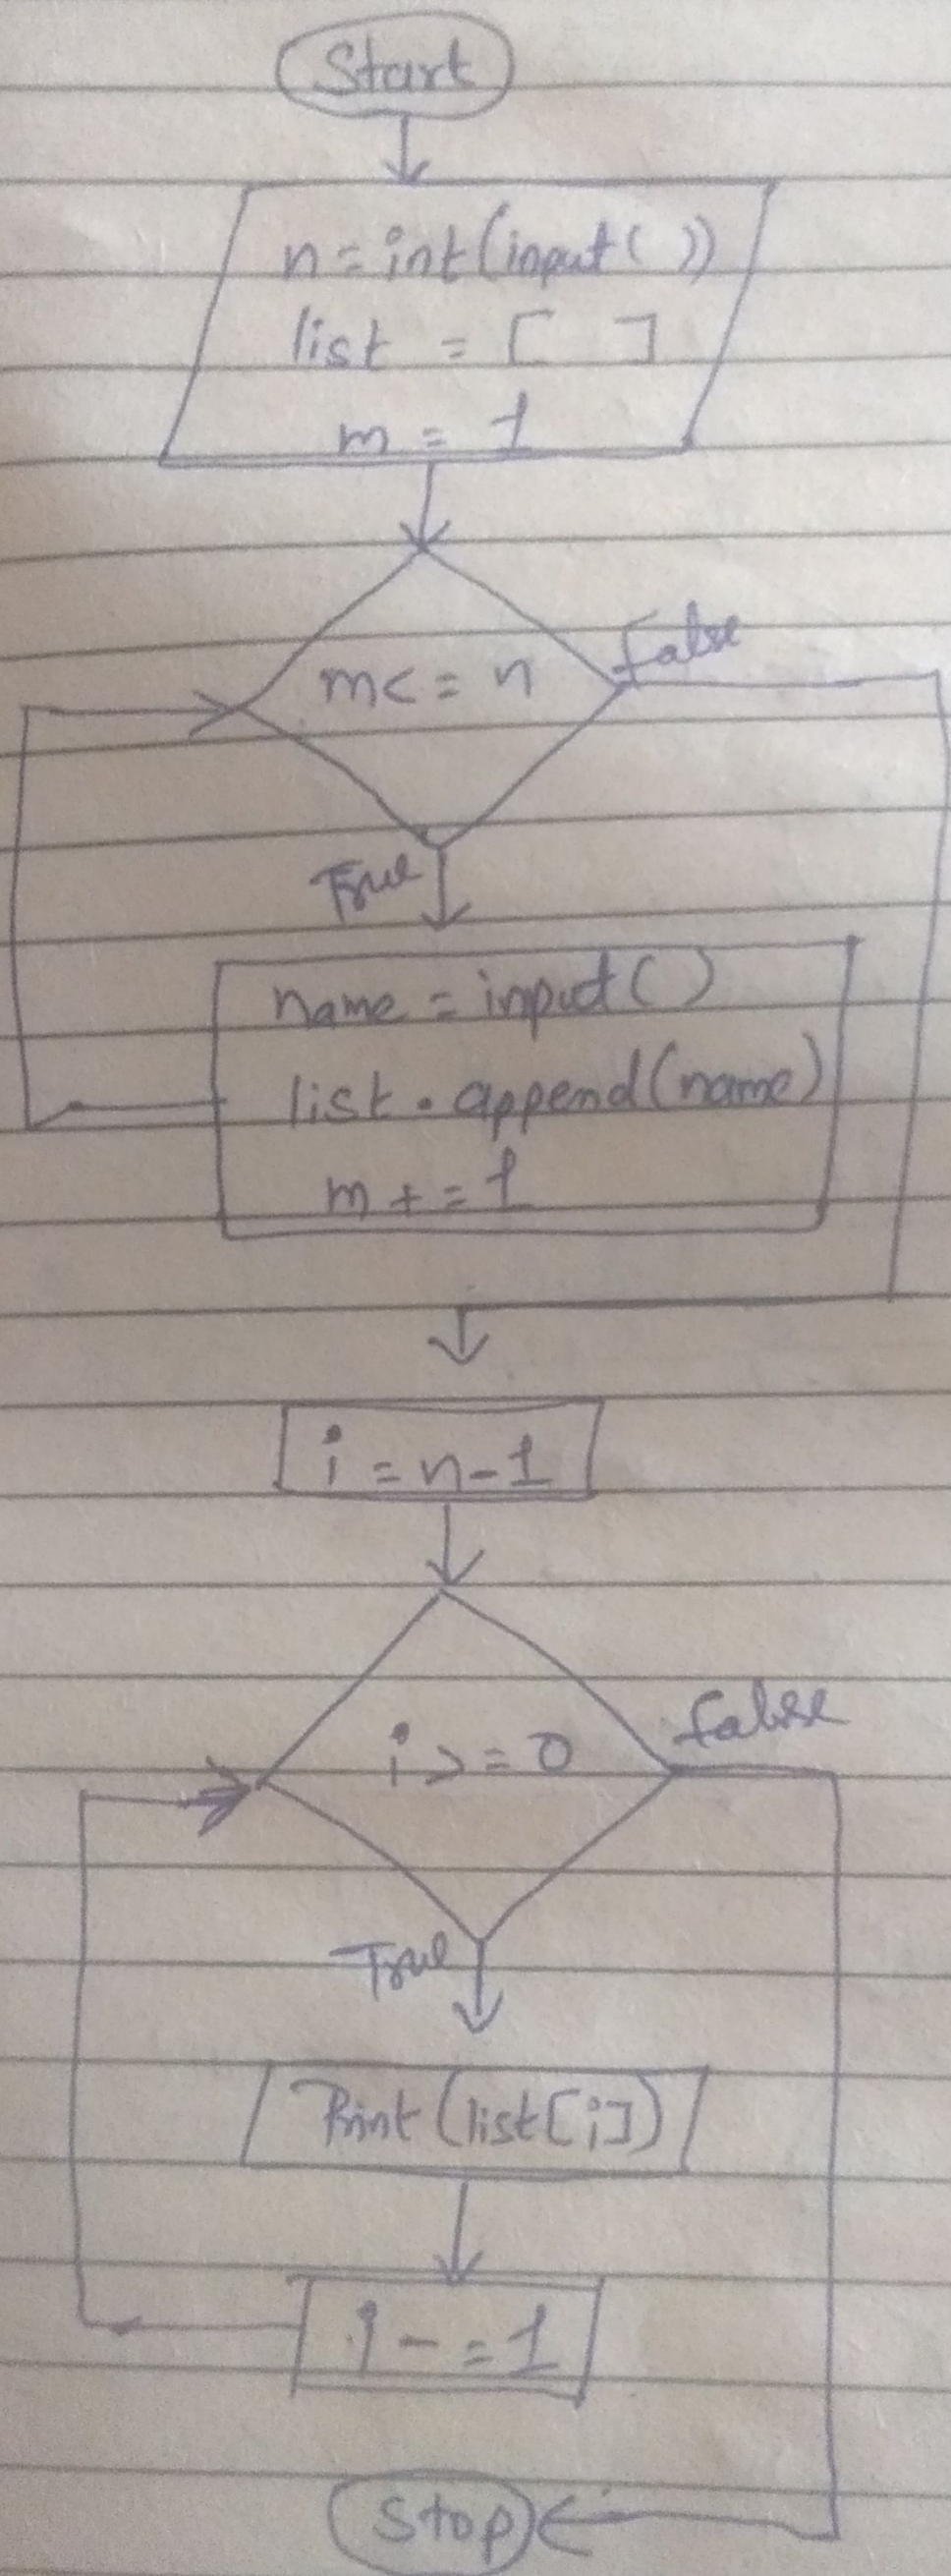 Start
n = int(input( ))
list = [ ]
m = 1
m<= n
False
True
name = input( )
list.append(name)
m+=1
i = n-1
i >= 0
false
True
Print(list[i])
i -= 1
Stop